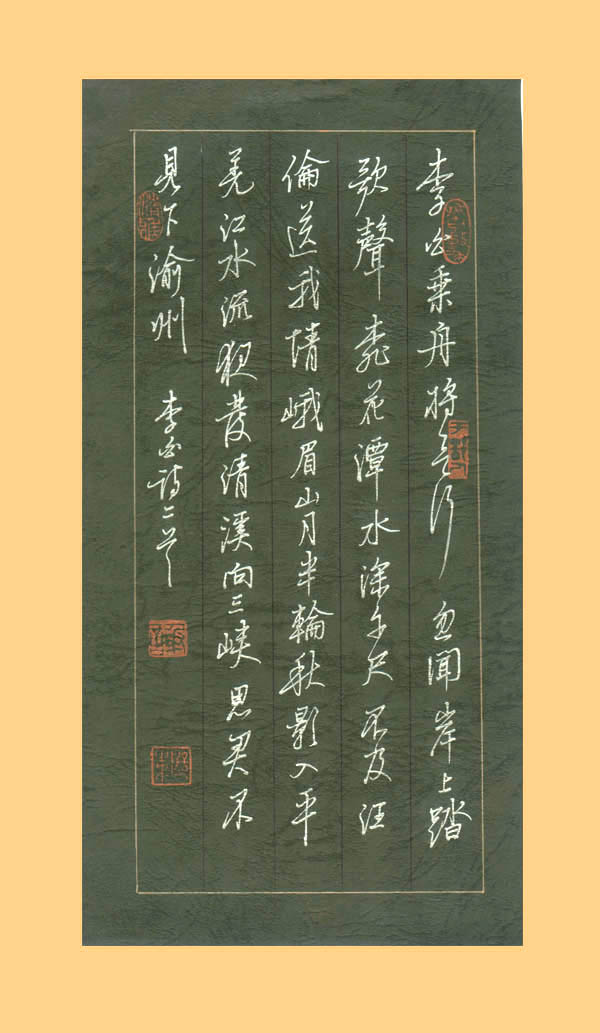 李白乘舟將欲行忽聞岸上踏
歌聲桃花潭水深千尺不及汪
倫送我情峨眉山月半輪秋影入平
羌江水流夜發清溪向三峽思君不
見下渝州 李白詩二首